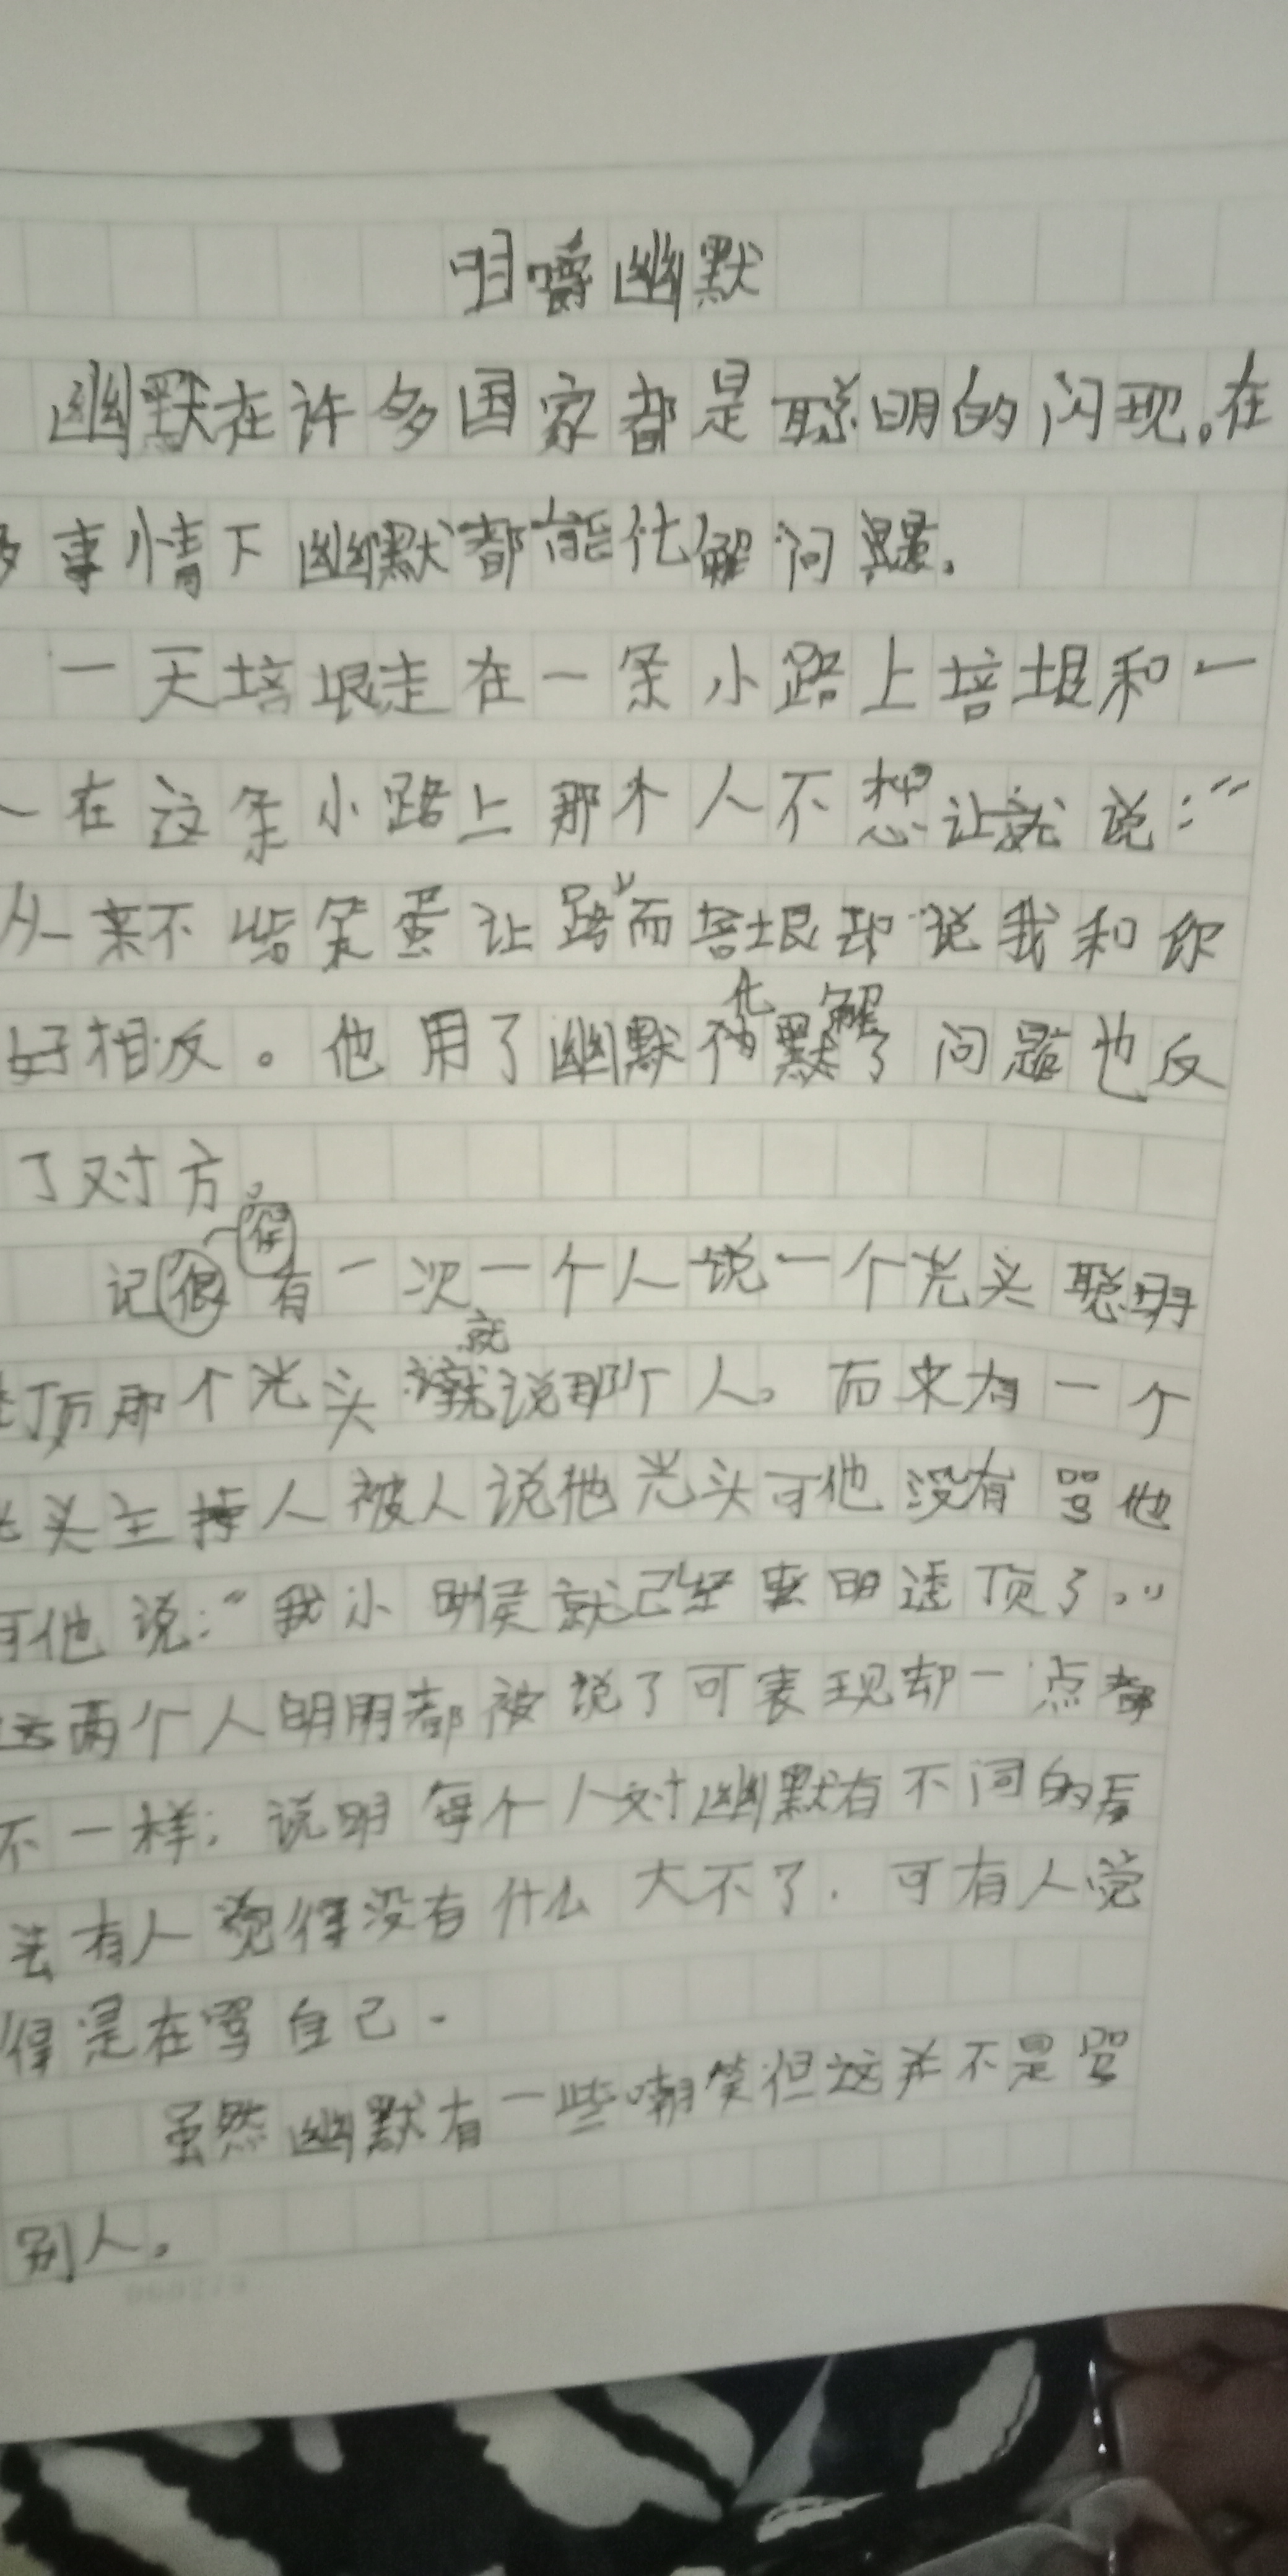 咀嚼幽默
幽默在许多国家都是聪明的闪现。在
多事情下幽默都能化解问题。
一天培垠走在一条小路上培垠和一
在这条小路上那个人不想让就说：“
从来不给笨蛋让路”而培垠却说我和你
好相反。他用了幽默化解了问题也反
了对方。
记得有一次一个人说一个光头聪明
顶那个光头就说那个人。而来有一个
光头主持人被人说他光头可他没有骂他
可他说：“我小时候就已经聪明透顶了。”
这两个人明明都被说了可表现却一点都
不一样；说明每个人对幽默有不同的看
法有人觉得没有什么大不了．可有人觉
得是在骂自己．
虽然幽默有一些嘲笑但这并不是骂
别人。